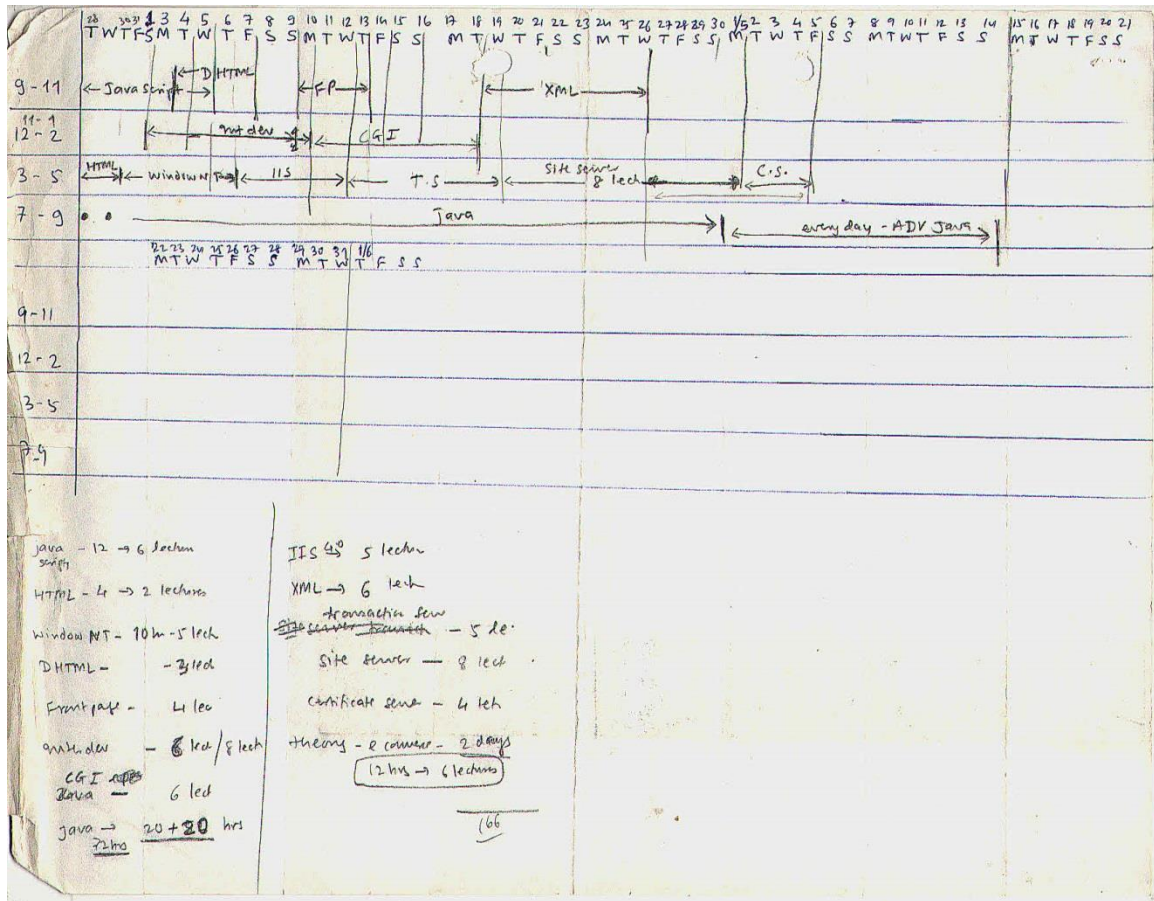 28 30 31 1 3 4 5 6 7 8 9 10 11 12 13 14 15 16 17 18 19 20 21 22 23 24 25 26 27 28 29 30 1/5 2 3 4 5 6 7 8 9 10 11 12 13 14 15 16 17 18 19 20 21
T W T F S M T W T F S S M T W T F S S M T W T F S S M T W T F S S M T W T F S S M T W T F S S M T W T F S S
DHTML
9-11 Java Script FP XML
11-1
12-2 int dev CGI
3-5 HTML Window NT IIS T.S Site server 8 lech C.S.
7-9 Java every day - ADV Java
22 23 24 25 26 27 28 29 30 31 1/6
M T W T F S S M T W T F S S
9-11
12-2
3-5
7-9
java script - 12 → 6 lecture
HTML - 4 → 2 lectures
Window NT - 10 hr - 5 lech
DHTML - - 3 lec
Frontpage - 4 lec
interdev - 6 lec / 8 lech
CGI
Java - 6 lect
java → 20 + 20 hrs
72 hrs
IIS → 5 lecher
XML → 6 lech
transaction serv
- 5 le.
Site server - 8 lect
Certificate server - 4 leh
theory - e commerce - 2 days
12 hrs → 6 lectures
166